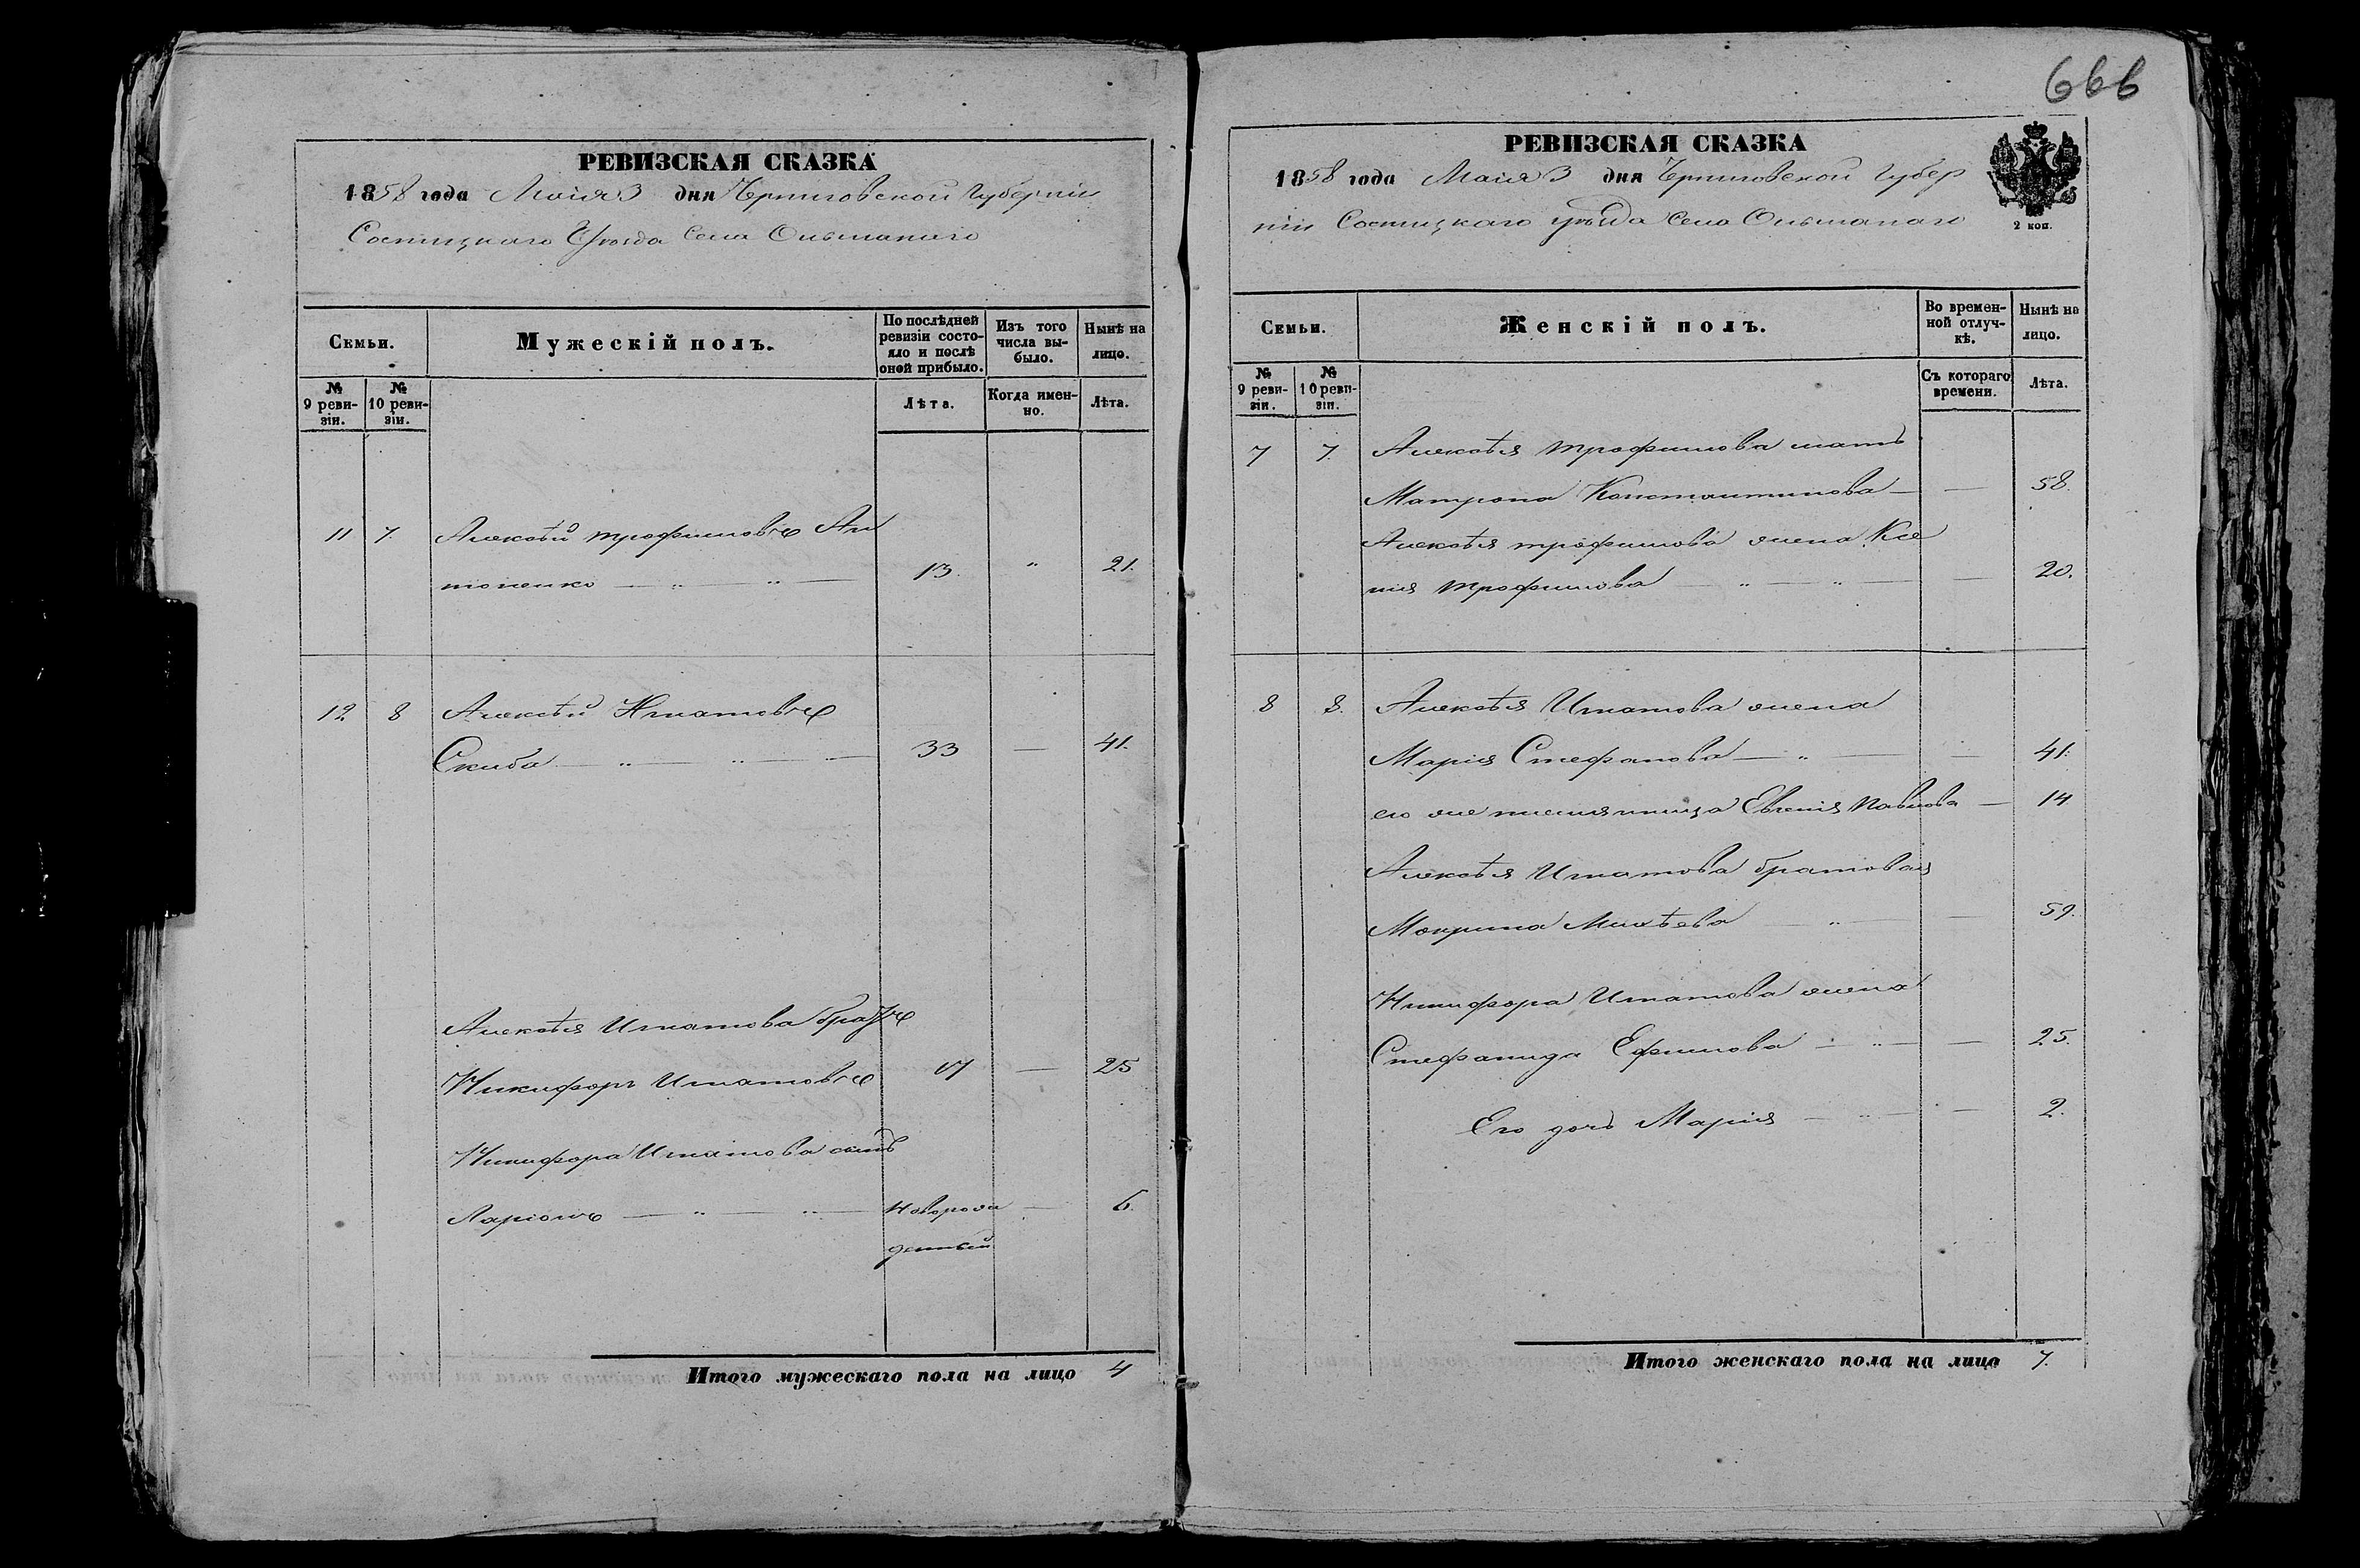 РЕВИЗСКАЯ СКАЗКА
1858 года Маія 3 дня Черниговской Губерніи
Сосницкаго Уѣзда Села Ольшанаго
Семьи.
Мужескій полъ.
По послѣдней ревизіи состояло и послѣ оной прибыло.
Изъ того числа выбыло.
Нынѣ на лицо.
№ 9 ревизіи.
№ 10 ревизіи.
Лѣта.
Когда именно.
Лѣта.
11 7. Алексѣй Трофимовъ Ан
тоненко — „ — „ — 13. „ 21.
12 8 Алексѣй Игнатовъ
Скиба — „ — „ — 33 — 41.
Алексѣя Игнатова братъ
Никифоръ Игнатовъ 17 — 25
Никифора Игнатова сынъ
Ларіонъ — „ — „ — новорож — 6.
денный
Итого мужескаго пола на лицо 4
666
РЕВИЗСКАЯ СКАЗКА
1858 года Маія 3 дня Черниговской Губер
ніи Сосницкаго уѣзда Села Ольшанаго
2 коп.
Семьи.
Женскій полъ.
Во временной отлучкѣ.
Нынѣ на лицо.
№ 9 ревизіи.
№ 10 ревизіи.
Съ котораго времени.
Лѣта.
7 7. Алексѣя Трофимова мать
Матрона Константинова — — 58.
Алексѣя Трофимова жена Ксе
нія Трофимова — „ — „ — — 20.
8 8. Алексѣя Игнатова жена
Марія Стефанова — „ — — 41.
его же племянница Евгенія Павлова — 14
Алексѣя Игнатова братовая
Мокрина Михѣева — „ — — 59.
Никифора Игнатова жена
Стефанида Ефимова — „ — — 25.
Его дочь Марія — „ — — 2.
Итого женскаго пола на лицо 7.